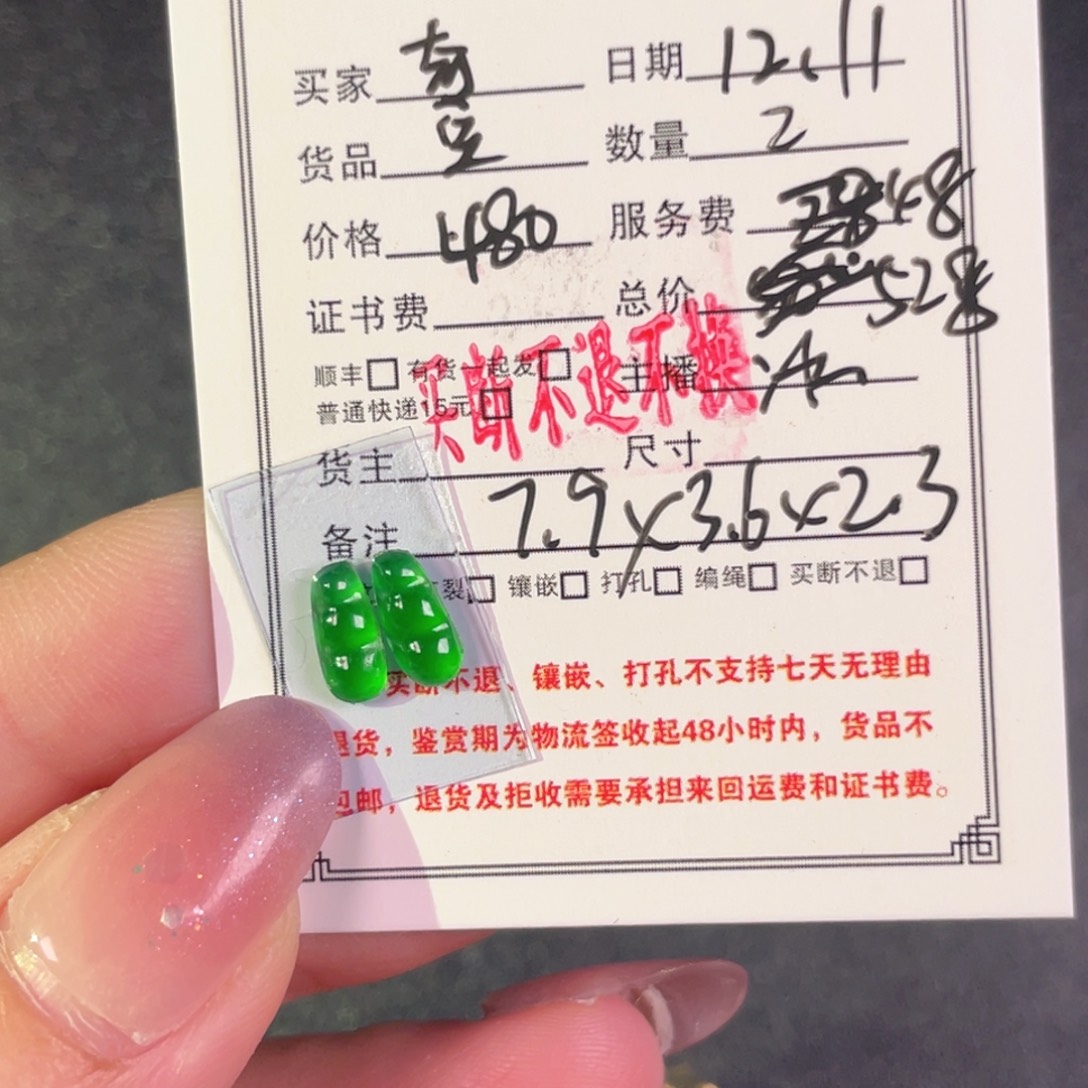 买家 日期 12.11
货品 豆 数量 2
价格 480 服务费 48
证书费 总价 528
顺丰 有货一起发 主播
普通快递15元
买断不退不换
货主 尺寸
备注 7.9x3.6x2.3
裂 镶嵌 打孔 编绳 买断不退
买断不退、镶嵌、打孔不支持七天无理由
退货，鉴赏期为物流签收起48小时内，货品不
包邮，退货及拒收需要承担来回运费和证书费。